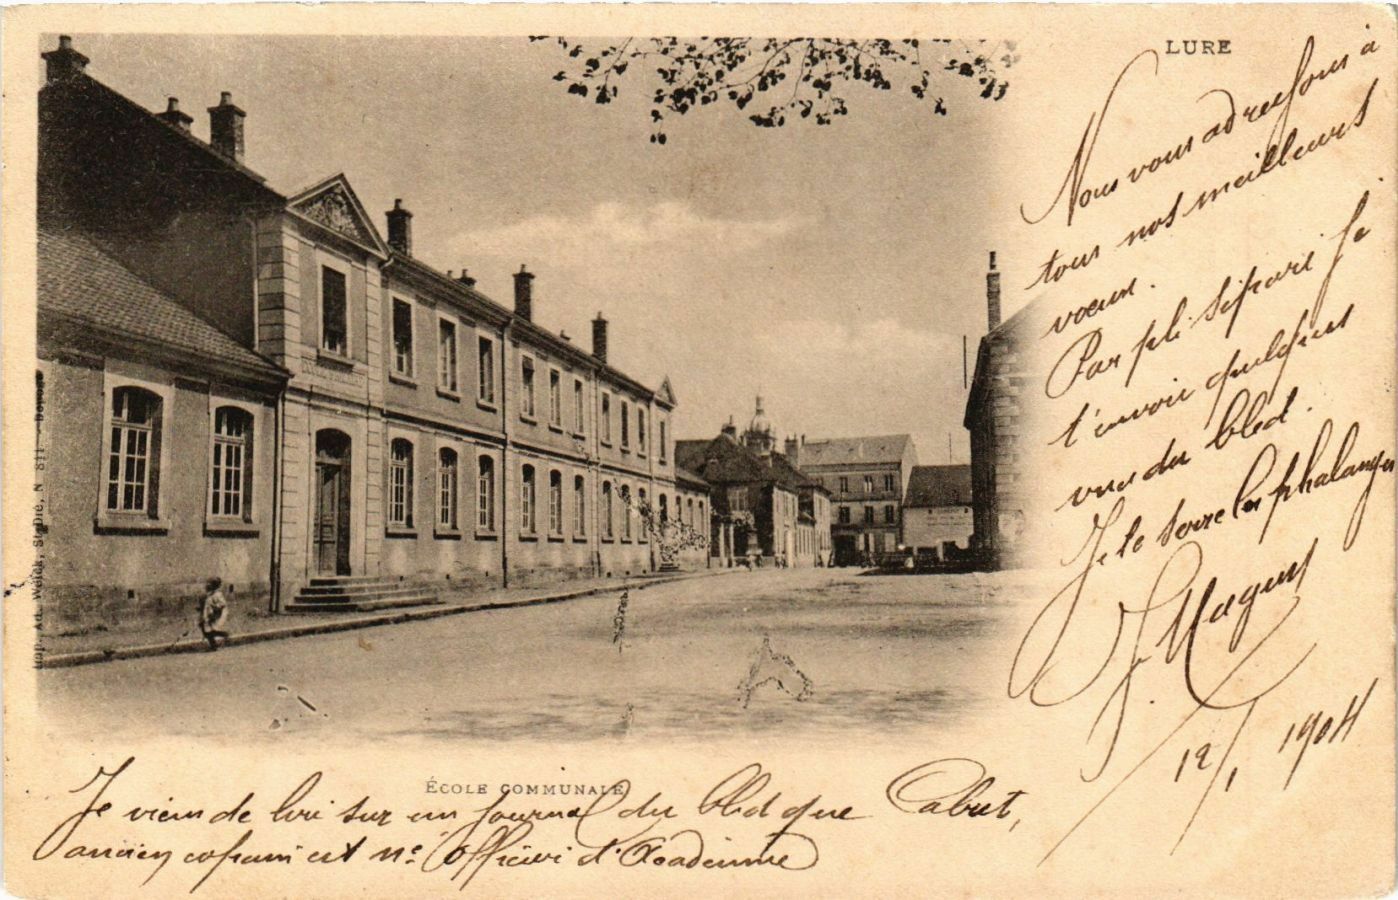 LURE
Nous vous adressons à
tous nos meilleurs
vœux.
Par pli séparé je
t'envoie quelques
vues du bled.
Je te serre les phalanges
J. Maguy
12/1 1904
Imp. Ad. Weick, St-Dié, N 811
ÉCOLE COMMUNALE
Je viens de lire sur un journal du bled que Cabut,
ancien copain est né Officier d'Académie